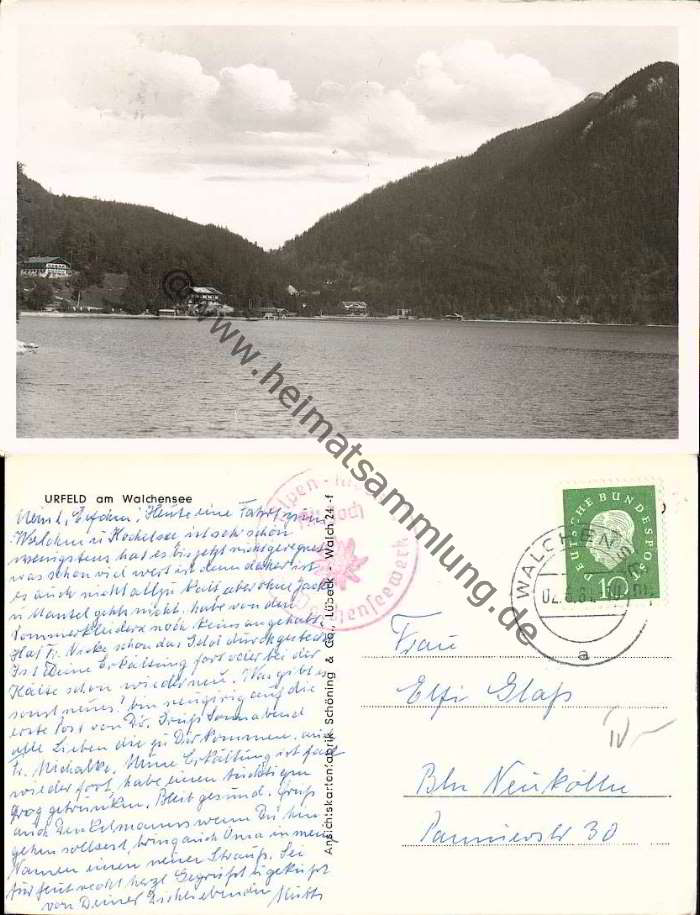 © www.heimatsammlung.de
URFELD am Walchensee
Mein Heute eine Fahrt zum
Walchen u Kochelsee, ist sehr schön
wenigstens hat es bis jetzt nicht geregnet
was schon viel wert ist, denn daher ist
es auch nicht allzu kalt aber ohne Jacke
u Mantel gehts nicht. habe von den
Sommerkleidern noch keins angehabt.
Hat Fr. schon das Geld durchgesteckt
Ist Deine Erkältung fort oder bei der
Kälte schon wieder neu. Was gibt es
sonst neues? bin neugierig auf die
erste Post von Dir. Grüß Sonnabend
alle Lieben die zu Dir kommen, auch
Fr. Michalke. Meine Erkältung ist fast
wieder fort, habe einen tüchtigen
Grog getrunken. Bleib gesund. Grüß
auch wenn Du hin-
gehen solltest, bring auch Oma in mein
Namen einen neuen Strauß. Sei
für heut recht herzl. Gegrüßt u geküßt
von Deiner Dich liebenden Mutti
Ansichtskartenfabrik Schöning & Co., Lübeck - Walch 24 -f
Alpen-
Walchenseewerk
DEUTSCHE BUNDESPOST
10
WALCHENSEE
a
Frau
Elfi Glaß
Bln Neukölln
Pannierstr 30